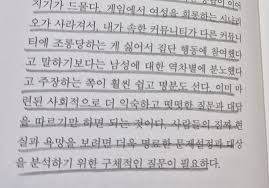 지기가 드물다. 게임에서 여성을 희롱하는 시나리
오가 사라져서, 내가 속한 커뮤니티가 다른 커뮤니
티에 조롱당하는 게 싫어서 집단 행동에 참여했다
고 말하기보다는 남성에 대한 역차별에 분노했다
고 주장하는 쪽이 훨씬 쉽고 명료한 셈이다. 이미 마
련된 사회적으로 더 익숙하고 떳떳한 질문과 대답
을 따르기만 하면 되는 것이다. 사람들의 진짜 현
실과 욕망을 보려면 더욱 명료한 문제설정과 대상
을 분석하기 위한 구체적인 질문이 필요하다.